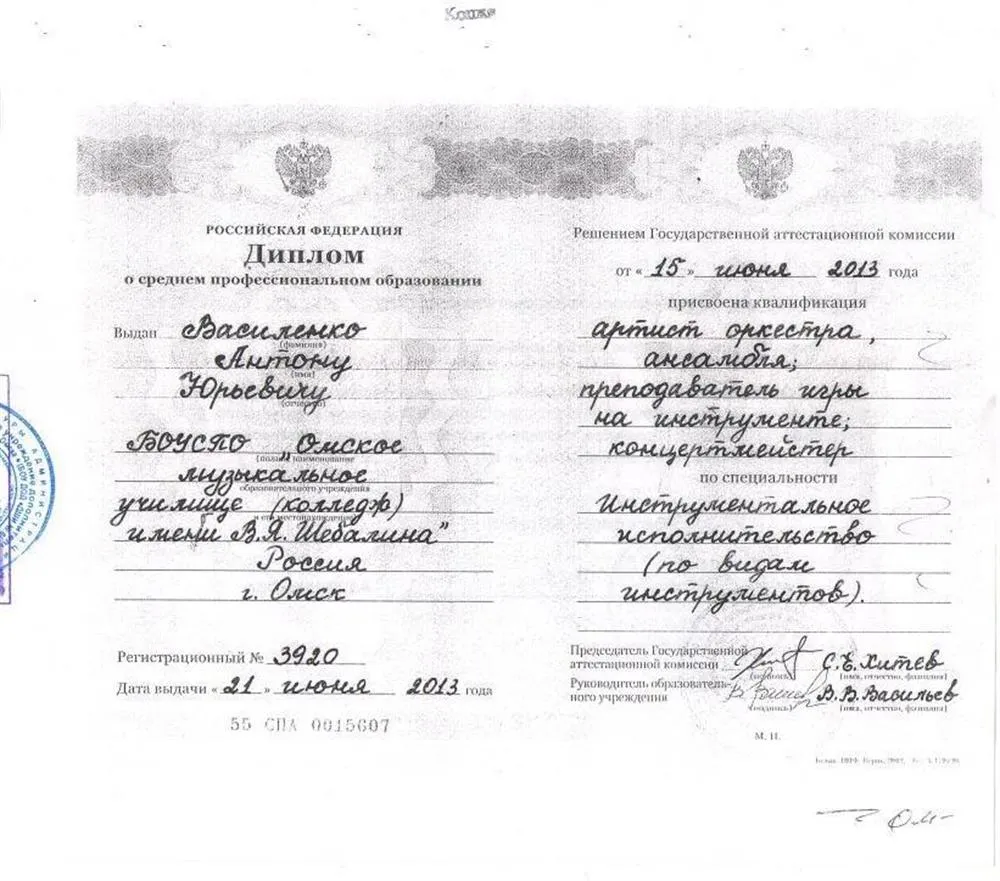 Копия
РОССИЙСКАЯ ФЕДЕРАЦИЯ
Диплом
о среднем профессиональном образовании
Выдан Василенко
(фамилия)
Антону
(имя)
Юрьевичу
(отчество)
БОУСПО „Омское
(полное наименование
музыкальное
образовательного учреждения
училище (колледж)
и его местонахождение)
имени В.Я. Шебалина"
Россия
г. Омск
Регистрационный № 3920
Дата выдачи « 21 » июня 2013 года
55 СПА 0015607
Решением Государственной аттестационной комиссии
от « 15 » июня 2013 года
присвоена квалификация
артист оркестра,
ансамбля;
преподаватель игры
на инструменте;
концертмейстер
по специальности
Инструментальное
исполнительство
(по видам
инструментов).
Председатель Государственной
аттестационной комиссии С.Е. Хитёв
(подпись) (имя, отчество, фамилия)
Руководитель образователь-
ного учреждения В.В. Васильев
(подпись) (имя, отчество, фамилия)
М. П.